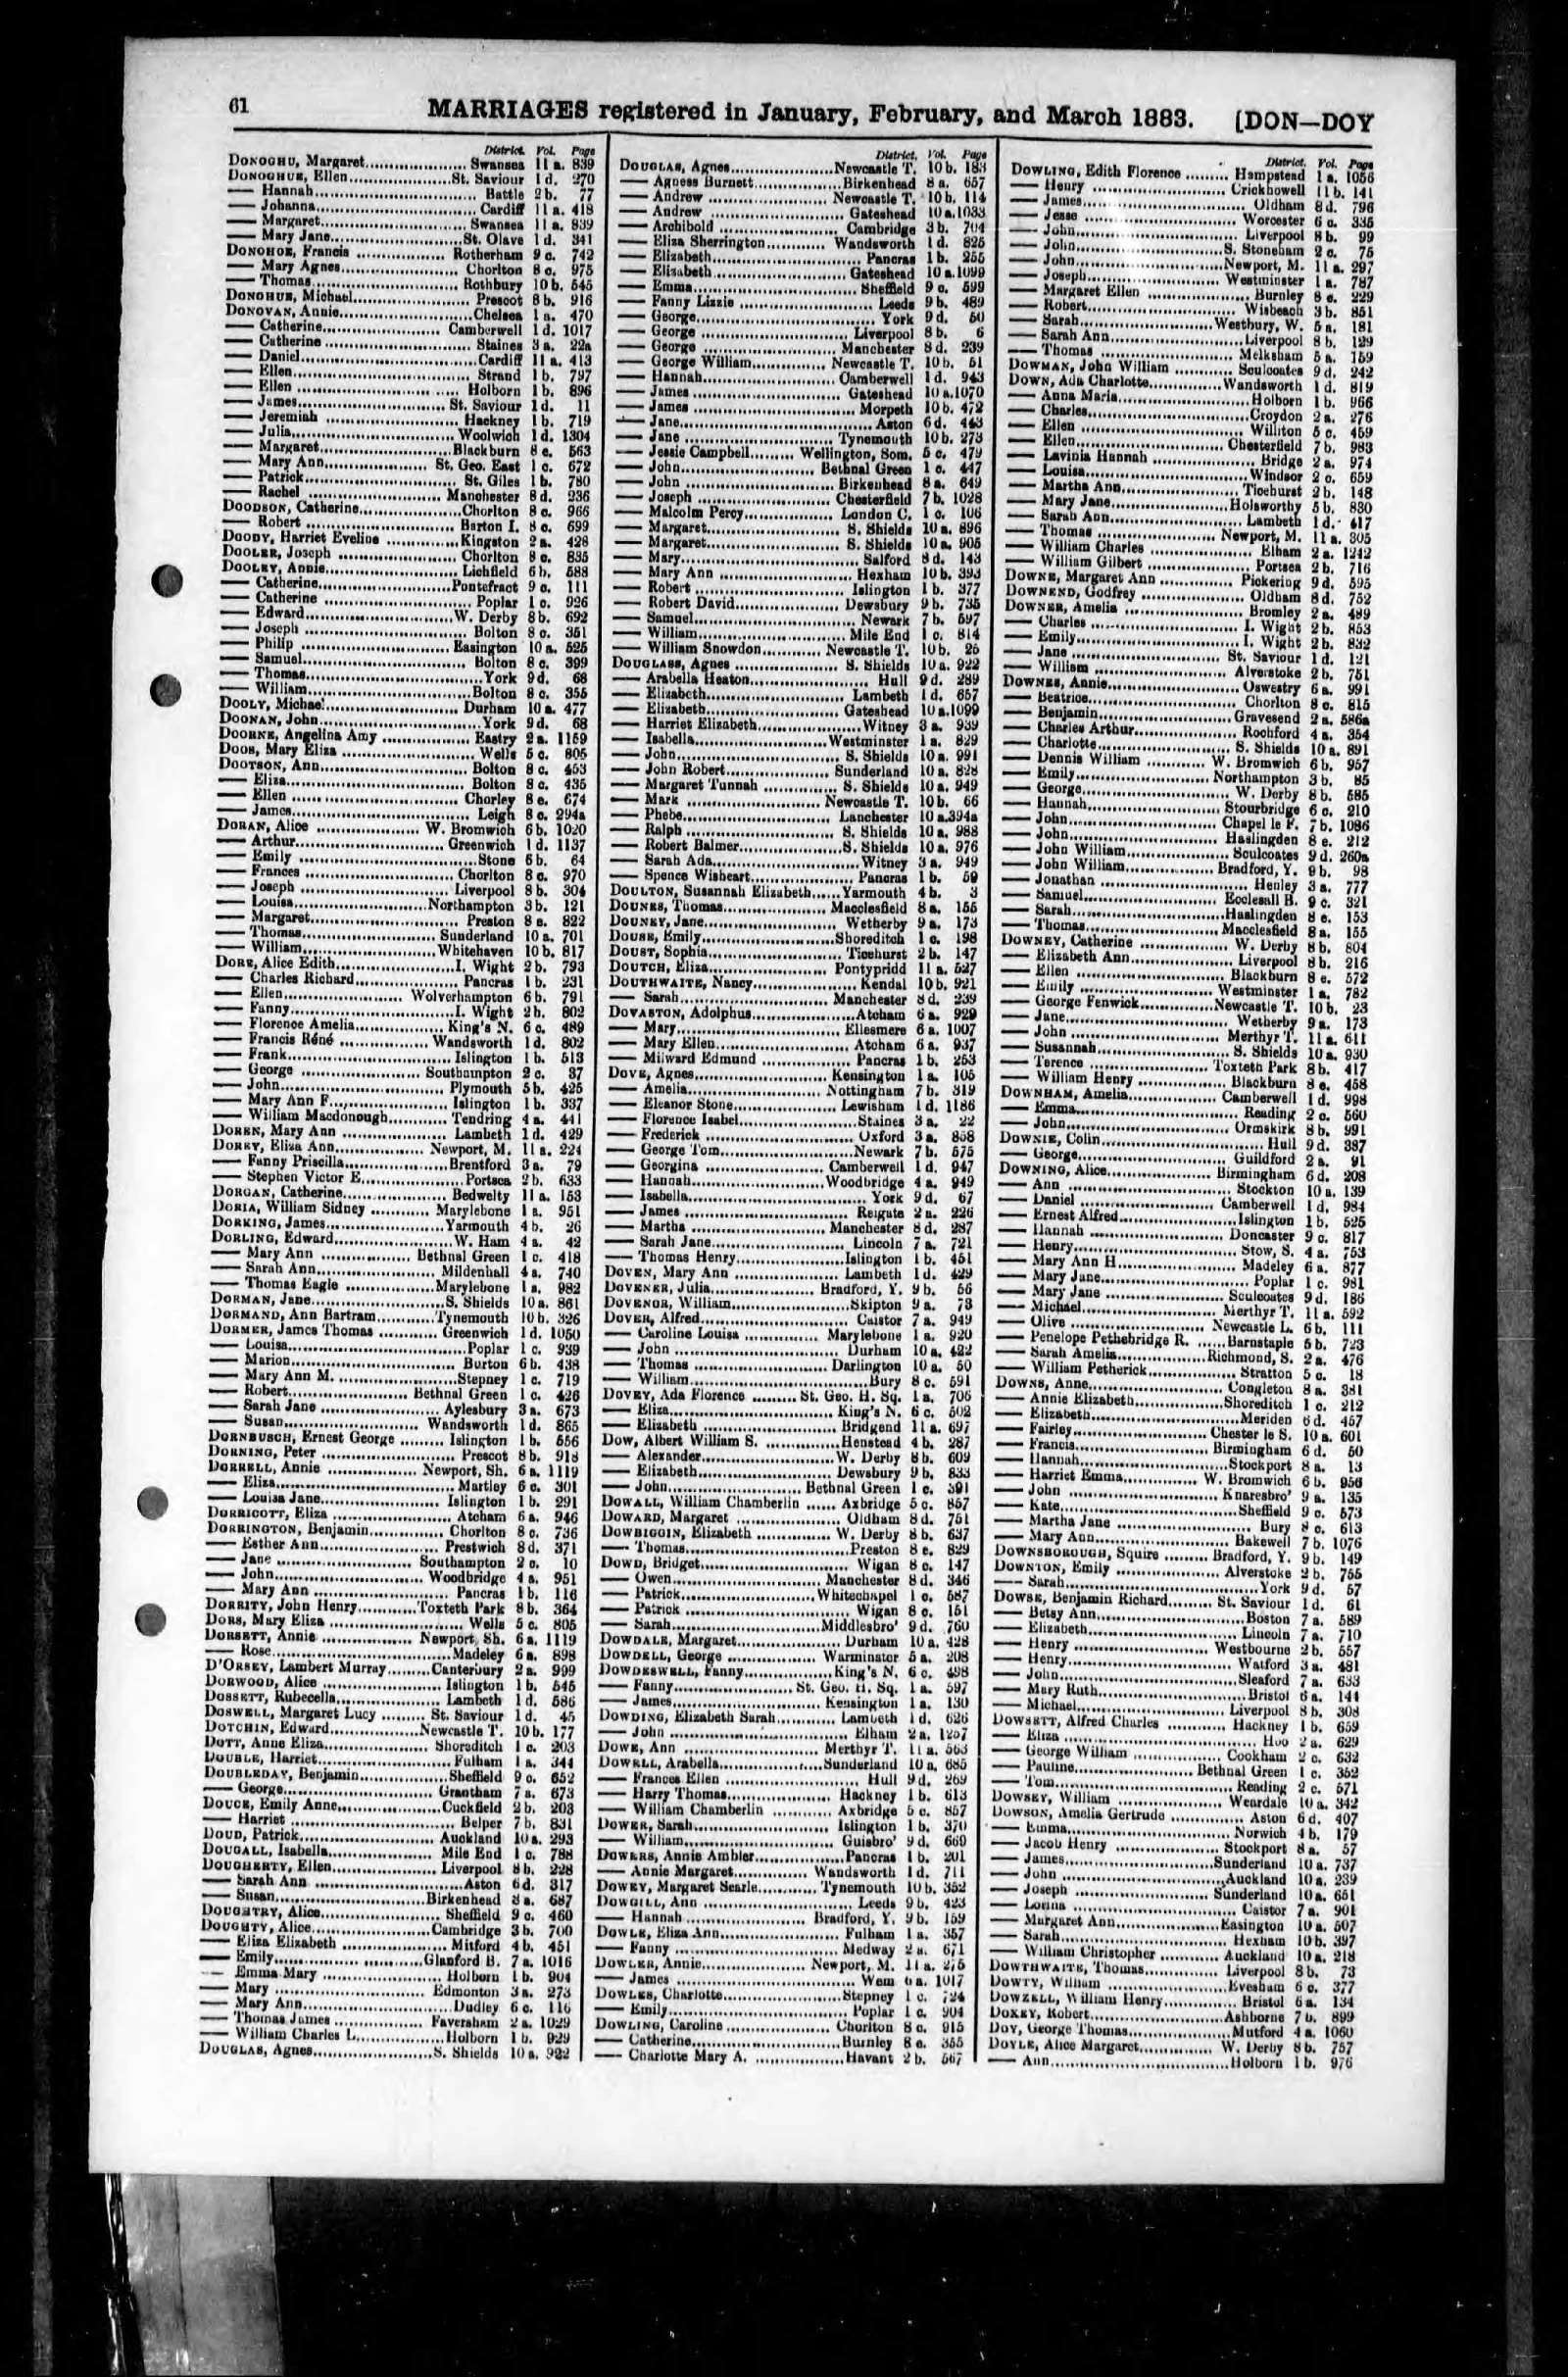 61 MARRIAGES registered in January, February, and March 1883. [DON—DOY
District. Vol. Page
DONOGHU, Margaret Swansea 11a. 839
DONOGHUE, Ellen St. Saviour 1d. 270
— Hannah Battle 2b. 77
— Johanna Cardiff 11a. 418
— Margaret Swansea 11a. 839
— Mary Jane St. Olave 1d. 341
DONOHOE, Francis Rotherham 9c. 742
— Mary Agnes Chorlton 8c. 975
— Thomas Rothbury 10b. 545
DONOHUE, Michael Prescot 8b. 916
DONOVAN, Annie Chelsea 1a. 470
— Catherine Camberwell 1d. 1017
— Catherine Staines 3a. 22a
— Daniel Cardiff 11a. 413
— Ellen Strand 1b. 797
— Ellen Holborn 1b. 896
— James St. Saviour 1d. 11
— Jeremiah Hackney 1b. 719
— Julia Woolwich 1d. 1304
— Margaret Blackburn 8e. 563
— Mary Ann St. Geo. East 1c. 672
— Patrick St. Giles 1b. 780
— Rachel Manchester 8d. 236
DOODSON, Catherine Chorlton 8c. 966
— Robert Barton I. 8c. 699
DOODY, Harriet Eveline Kingston 2a. 428
DOOLER, Joseph Chorlton 8c. 835
DOOLEY, Annie Lichfield 6b. 588
— Catherine Pontefract 9c. 111
— Catherine Poplar 1c. 926
— Edward W. Derby 8b. 692
— Joseph Bolton 8c. 351
— Philip Easington 10a. 525
— Samuel Bolton 8c. 399
— Thomas York 9d. 68
— William Bolton 8c. 355
DOOLY, Michael Durham 10a. 477
DOONAN, John York 9d. 68
DOORNE, Angelina Amy Eastry 2a. 1159
DOOS, Mary Eliza Wells 5c. 805
DOOTSON, Ann Bolton 8c. 453
— Eliza Bolton 8c. 435
— Ellen Chorley 8e. 674
— James Leigh 8c. 294a
DORAN, Alice W. Bromwich 6b. 1020
— Arthur Greenwich 1d. 1137
— Emily Stone 6b. 64
— Frances Chorlton 8c. 970
— Joseph Liverpool 8b. 304
— Louisa Northampton 3b. 121
— Margaret Preston 8e. 822
— Thomas Sunderland 10a. 701
— William Whitehaven 10b. 817
DORE, Alice Edith I. Wight 2b. 793
— Charles Richard Pancras 1b. 231
— Ellen Wolverhampton 6b. 791
— Fanny I. Wight 2b. 802
— Florence Amelia King's N. 6c. 489
— Francis Réné Wandsworth 1d. 802
— Frank Islington 1b. 513
— George Southampton 2c. 37
— John Plymouth 5b. 425
— Mary Ann F. Islington 1b. 337
— William Macdonough Tendring 4a. 441
DOREN, Mary Ann Lambeth 1d. 429
DOREY, Eliza Ann Newport, M. 11a. 224
— Fanny Priscilla Brentford 3a. 79
— Stephen Victor E. Portsea 2b. 633
DORGAN, Catherine Bedwelty 11a. 153
DORIA, William Sidney Marylebone 1a. 951
DORKING, James Yarmouth 4b. 26
DORLING, Edward W. Ham 4a. 42
— Mary Ann Bethnal Green 1c. 418
— Sarah Ann Mildenhall 4a. 740
— Thomas Eagle Marylebone 1a. 982
DORMAN, Jane S. Shields 10a. 861
DORMAND, Ann Bartram Tynemouth 10b. 326
DORMER, James Thomas Greenwich 1d. 1050
— Louisa Poplar 1c. 939
— Marion Burton 6b. 438
— Mary Ann M. Stepney 1c. 719
— Robert Bethnal Green 1c. 426
— Sarah Jane Aylesbury 3a. 673
— Susan Wandsworth 1d. 865
DORNBUSCH, Ernest George Islington 1b. 556
DORNING, Peter Prescot 8b. 918
DORRELL, Annie Newport, Sh. 6a. 1119
— Eliza Martley 6c. 301
— Louisa Jane Islington 1b. 291
DORRICOTT, Eliza Atcham 6a. 946
DORRINGTON, Benjamin Chorlton 8c. 736
— Esther Ann Prestwich 8d. 371
— Jane Southampton 2c. 10
— John Woodbridge 4a. 951
— Mary Ann Pancras 1b. 116
DORRITY, John Henry Toxteth Park 8b. 364
DORS, Mary Eliza Wells 5c. 805
DORSETT, Annie Newport, Sh. 6a. 1119
— Rose Madeley 6a. 898
D'ORSEY, Lambert Murray Canterbury 2a. 999
DORWOOD, Alice Islington 1b. 545
DOSSETT, Rubecella Lambeth 1d. 586
DOSWELL, Margaret Lucy St. Saviour 1d. 45
DOTCHIN, Edward Newcastle T. 10b. 177
DOTT, Anne Eliza Shoreditch 1c. 203
DOUBLE, Harriet Fulham 1a. 344
DOUBLEDAY, Benjamin Sheffield 9c. 652
— George Grantham 7a. 673
DOUCE, Emily Anne Cuckfield 2b. 203
— Harriet Belper 7b. 831
DOUD, Patrick Auckland 10a. 293
DOUGALL, Isabella Mile End 1c. 788
DOUGHERTY, Ellen Liverpool 8b. 228
— Sarah Ann Aston 6d. 317
— Susan Birkenhead 8a. 687
DOUGHTRY, Alice Sheffield 9c. 460
DOUGHTY, Alice Cambridge 3b. 700
— Eliza Elizabeth Mitford 4b. 451
— Emily Glanford B. 7a. 1016
— Emma Mary Holborn 1b. 904
— Mary Edmonton 3a. 273
— Mary Ann Dudley 6c. 116
— Thomas James Faversham 2a. 1029
— William Charles L. Holborn 1b. 929
DOUGLAS, Agnes S. Shields 10a. 922
District. Vol. Page
DOUGLAS, Agnes Newcastle T. 10b. 183
— Agness Burnett Birkenhead 8a. 657
— Andrew Newcastle T. 10b. 114
— Andrew Gateshead 10a. 1033
— Archibold Cambridge 3b. 704
— Eliza Sherrington Wandsworth 1d. 825
— Elizabeth Pancras 1b. 255
— Elizabeth Gateshead 10a. 1099
— Emma Sheffield 9c. 599
— Fanny Lizzie Leeds 9b. 489
— George York 9d. 50
— George Liverpool 8b. 6
— George Manchester 8d. 239
— George William Newcastle T. 10b. 51
— Hannah Camberwell 1d. 943
— James Gateshead 10a. 1070
— James Morpeth 10b. 472
— Jane Aston 6d. 443
— Jane Tynemouth 10b. 273
— Jessie Campbell Wellington, Som. 5c. 479
— John Bethnal Green 1c. 447
— John Birkenhead 8a. 649
— Joseph Chesterfield 7b. 1028
— Malcolm Percy London C. 1c. 106
— Margaret S. Shields 10a. 896
— Margaret S. Shields 10a. 905
— Mary Salford 8d. 143
— Mary Ann Hexham 10b. 393
— Robert Islington 1b. 377
— Robert David Dewsbury 9b. 735
— Samuel Newark 7b. 597
— William Mile End 1c. 814
— William Snowdon Newcastle T. 10b. 25
DOUGLASS, Agnes S. Shields 10a. 922
— Arabella Heaton Hull 9d. 289
— Elizabeth Lambeth 1d. 657
— Elizabeth Gateshead 10a. 1099
— Harriet Elizabeth Witney 3a. 939
— Isabella Westminster 1a. 829
— John S. Shields 10a. 991
— John Robert Sunderland 10a. 828
— Margaret Tunnah S. Shields 10a. 949
— Mark Newcastle T. 10b. 66
— Phebe Lanchester 10a. 394a
— Ralph S. Shields 10a. 988
— Robert Balmer S. Shields 10a. 976
— Sarah Ada Witney 3a. 949
— Spence Wisheart Pancras 1b. 59
DOULTON, Susannah Elizabeth Yarmouth 4b. 3
DOUNES, Thomas Macclesfield 8a. 155
DOUNEY, Jane Wetherby 9a. 173
DOUSE, Emily Shoreditch 1c. 198
DOUST, Sophia Ticehurst 2b. 147
DOUTCH, Eliza Pontypridd 11a. 527
DOUTHWAITE, Nancy Kendal 10b. 921
— Sarah Manchester 8d. 239
DOVASTON, Adolphus Atcham 6a. 929
— Mary Ellesmere 6a. 1007
— Mary Ellen Atcham 6a. 937
— Milward Edmund Pancras 1b. 253
DOVE, Agnes Kensington 1a. 105
— Amelia Nottingham 7b. 319
— Eleanor Stone Lewisham 1d. 1186
— Florence Isabel Staines 3a. 22
— Frederick Oxford 3a. 858
— George Tom Newark 7b. 575
— Georgina Camberwell 1d. 947
— Hannah Woodbridge 4a. 949
— Isabella York 9d. 67
— James Reigate 2a. 226
— Martha Manchester 8d. 287
— Sarah Jane Lincoln 7a. 721
— Thomas Henry Islington 1b. 451
DOVEN, Mary Ann Lambeth 1d. 429
DOVENER, Julia Bradford, Y. 9b. 56
DOVENOR, William Skipton 9a. 73
DOVER, Alfred Caistor 7a. 949
— Caroline Louisa Marylebone 1a. 920
— John Durham 10a. 422
— Thomas Darlington 10a. 50
— William Bury 8c. 591
DOVEY, Ada Florence St. Geo. H. Sq. 1a. 706
— Eliza King's N. 6c. 502
— Elizabeth Bridgend 11a. 697
DOW, Albert William S. Henstead 4b. 287
— Alexander W. Derby 8b. 609
— Elizabeth Dewsbury 9b. 833
— John Bethnal Green 1c. 391
DOWALL, William Chamberlin Axbridge 5c. 857
DOWARD, Margaret Oldham 8d. 751
DOWBIGGIN, Elizabeth W. Derby 8b. 637
— Thomas Preston 8e. 829
DOWD, Bridget Wigan 8c. 147
— Owen Manchester 8d. 346
— Patrick Whitechapel 1c. 587
— Patrick Wigan 8c. 151
— Sarah Middlesbro' 9d. 760
DOWDALE, Margaret Durham 10a. 428
DOWDELL, George Warminster 5a. 208
DOWDESWELL, Fanny King's N. 6c. 498
— Fanny St. Geo. H. Sq. 1a. 597
— James Kensington 1a. 130
DOWDING, Elizabeth Sarah Lambeth 1d. 626
— John Elham 2a. 1257
DOWE, Ann Merthyr T. 11a. 563
DOWELL, Arabella Sunderland 10a. 685
— Frances Ellen Hull 9d. 269
— Harry Thomas Hackney 1b. 613
— William Chamberlin Axbridge 5c. 857
DOWER, Sarah Islington 1b. 370
— William Guisbro' 9d. 669
DOWERS, Annie Ambler Pancras 1b. 201
— Annie Margaret Wandsworth 1d. 711
DOWEY, Margaret Searle Tynemouth 10b. 352
DOWGILL, Ann Leeds 9b. 423
— Hannah Bradford, Y. 9b. 159
DOWLE, Eliza Ann Fulham 1a. 357
— Fanny Medway 2a. 671
DOWLER, Annie Newport, M. 11a. 275
— James Wem 6a. 1017
DOWLES, Charlotte Stepney 1c. 724
— Emily Poplar 1c. 904
DOWLING, Caroline Chorlton 8c. 915
— Catherine Burnley 8e. 355
— Charlotte Mary A. Havant 2b. 567
District. Vol. Page
DOWLING, Edith Florence Hampstead 1a. 1056
— Henry Crickhowell 11b. 141
— James Oldham 8d. 796
— Jesse Worcester 6c. 335
— John Liverpool 8b. 99
— John S. Stoneham 2c. 75
— John Newport, M. 11a. 297
— Joseph Westminster 1a. 787
— Margaret Ellen Burnley 8e. 229
— Robert Wisbeach 3b. 851
— Sarah Westbury, W. 5a. 181
— Sarah Ann Liverpool 8b. 129
— Thomas Melksham 5a. 159
DOWMAN, John William Sculcoates 9d. 242
DOWN, Ada Charlotte Wandsworth 1d. 819
— Anna Maria Holborn 1b. 966
— Charles Croydon 2a. 276
— Ellen Williton 5c. 459
— Ellen Chesterfield 7b. 983
— Lavinia Hannah Bridge 2a. 974
— Louisa Windsor 2c. 659
— Martha Ann Ticehurst 2b. 148
— Mary Jane Holsworthy 5b. 830
— Sarah Ann Lambeth 1d. 617
— Thomas Newport, M. 11a. 305
— William Charles Elham 2a. 1242
— William Gilbert Portsea 2b. 716
DOWNE, Margaret Ann Pickering 9d. 595
DOWNEND, Godfrey Oldham 8d. 752
DOWNER, Amelia Bromley 2a. 489
— Charles I. Wight 2b. 853
— Emily I. Wight 2b. 832
— Jane St. Saviour 1d. 121
— William Alverstoke 2b. 751
DOWNES, Annie Oswestry 6a. 991
— Beatrice Chorlton 8c. 815
— Benjamin Gravesend 2a. 586a
— Charles Arthur Rochford 4a. 354
— Charlotte S. Shields 10a. 891
— Dennis William W. Bromwich 6b. 957
— Emily Northampton 3b. 85
— George W. Derby 8b. 585
— Hannah Stourbridge 6c. 210
— John Chapel le F. 7b. 1086
— John Haslingden 8e. 212
— John William Sculcoates 9d. 260a
— John William Bradford, Y. 9b. 98
— Jonathan Henley 3a. 777
— Samuel Ecclesall B. 9c. 321
— Sarah Haslingden 8e. 153
— Thomas Macclesfield 8a. 155
DOWNEY, Catherine W. Derby 8b. 804
— Elizabeth Ann Liverpool 8b. 216
— Ellen Blackburn 8e. 572
— Emily Westminster 1a. 782
— George Fenwick Newcastle T. 10b. 23
— Jane Wetherby 9a. 173
— John Merthyr T. 11a. 611
— Susannah S. Shields 10a. 930
— Terence Toxteth Park 8b. 417
— William Henry Blackburn 8e. 458
DOWNHAM, Amelia Camberwell 1d. 998
— Emma Reading 2c. 560
— John Ormskirk 8b. 991
DOWNIE, Colin Hull 9d. 387
— George Guildford 2a. 91
DOWNING, Alice Birmingham 6d. 208
— Ann Stockton 10a. 139
— Daniel Camberwell 1d. 984
— Ernest Alfred Islington 1b. 525
— Hannah Doncaster 9c. 817
— Henry Stow, S. 4a. 753
— Mary Ann H. Madeley 6a. 877
— Mary Jane Poplar 1c. 981
— Mary Jane Sculcoates 9d. 186
— Michael Merthyr T. 11a. 592
— Olive Newcastle L. 6b. 111
— Penelope Pethebridge R. Barnstaple 5b. 723
— Sarah Amelia Richmond, S. 2a. 476
— William Petherick Stratton 5c. 18
DOWNS, Anne Congleton 8a. 381
— Annie Elizabeth Shoreditch 1c. 212
— Elizabeth Meriden 6d. 457
— Fairley Chester le S. 10a. 601
— Francis Birmingham 6d. 50
— Hannah Stockport 8a. 13
— Harriet Emma W. Bromwich 6b. 956
— John Knaresbro' 9a. 135
— Kate Sheffield 9c. 573
— Martha Jane Bury 8c. 613
— Mary Ann Bakewell 7b. 1076
DOWNSBOROUGH, Squire Bradford, Y. 9b. 149
DOWNTON, Emily Alverstoke 2b. 755
— Sarah York 9d. 57
DOWSE, Benjamin Richard St. Saviour 1d. 61
— Betsy Ann Boston 7a. 589
— Elizabeth Lincoln 7a. 710
— Henry Westbourne 2b. 557
— Henry Watford 3a. 481
— John Sleaford 7a. 633
— Mary Ruth Bristol 6a. 141
— Michael Liverpool 8b. 308
DOWSETT, Alfred Charles Hackney 1b. 659
— Eliza Hoo 2a. 629
— George William Cookham 2c. 632
— Pauline Bethnal Green 1c. 352
— Tom Reading 2c. 571
DOWSEY, William Weardale 10a. 342
DOWSON, Amelia Gertrude Aston 6d. 407
— Emma Norwich 4b. 179
— Jacob Henry Stockport 8a. 57
— James Sunderland 10a. 737
— John Auckland 10a. 239
— Joseph Sunderland 10a. 651
— Louisa Caistor 7a. 901
— Margaret Ann Easington 10a. 507
— Sarah Hexham 10b. 397
— William Christopher Auckland 10a. 218
DOWTHWAITE, Thomas Liverpool 8b. 73
DOWTY, William Evesham 6c. 377
DOWZELL, William Henry Bristol 6a. 134
DOXEY, Robert Ashborne 7b. 899
DOY, George Thomas Mutford 4a. 1060
DOYLE, Alice Margaret W. Derby 8b. 757
— Ann Holborn 1b. 976